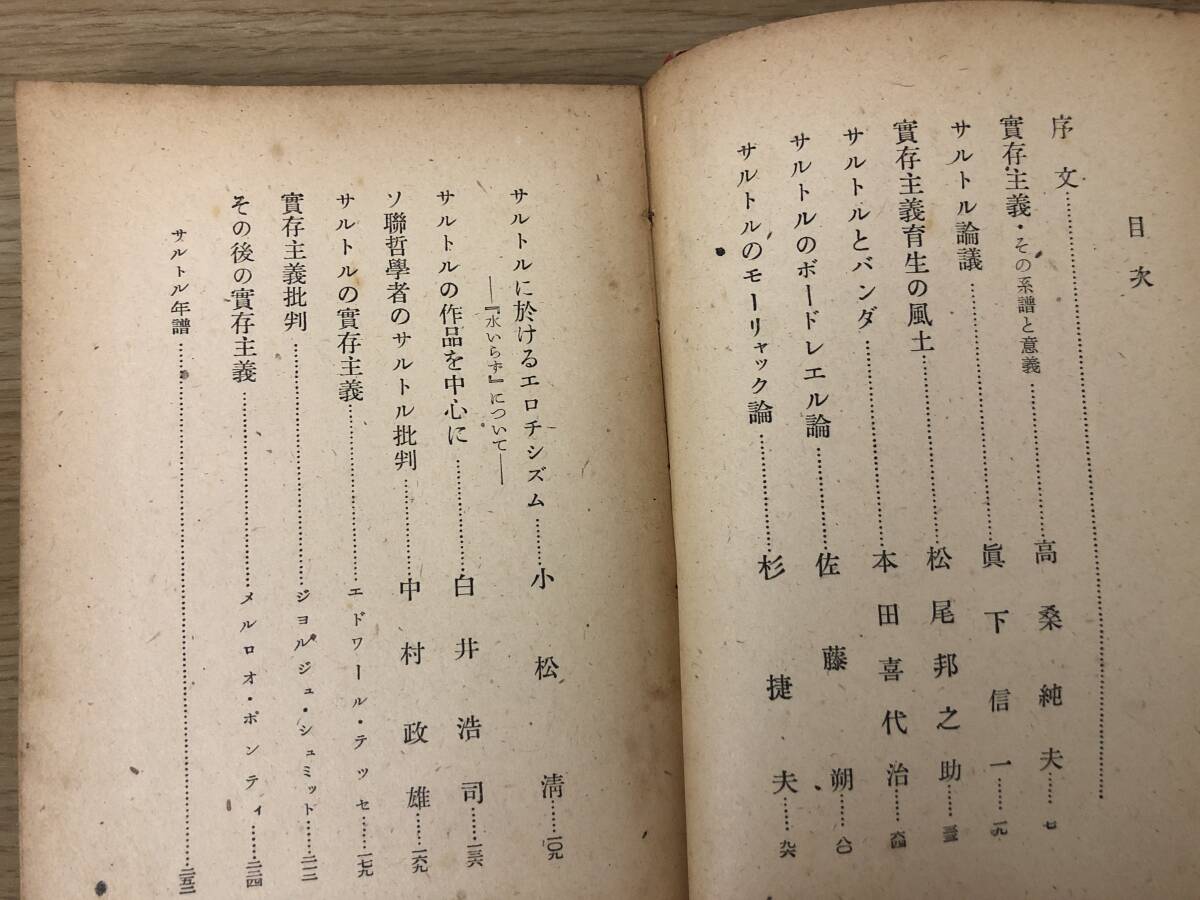 目次
序文……………………
實存主義・その系譜と意義……………高桑純夫……七
サルトル論議……………………眞下信一……一九
實存主義育生の風土……………松尾邦之助……三三
サルトルとバンダ……………本田喜代治……六四
サルトルのボードレエル論………佐藤朔……八〇
サルトルのモーリャック論………杉捷夫……九六
サルトルに於けるエロチシズム………小松淸……一〇九
――『水いらず』について――
サルトルの作品を中心に…………白井浩司……一三六
ソ聯哲學者のサルトル批判…………中村政雄……一六九
サルトルの實存主義……………エドワール・テッセ……一七九
實存主義批判……………………ジョルジュ・シュミット……二一二
その後の實存主義……………………メルロオ・ポンティ……二三四
サルトル年譜……………………………………二五二